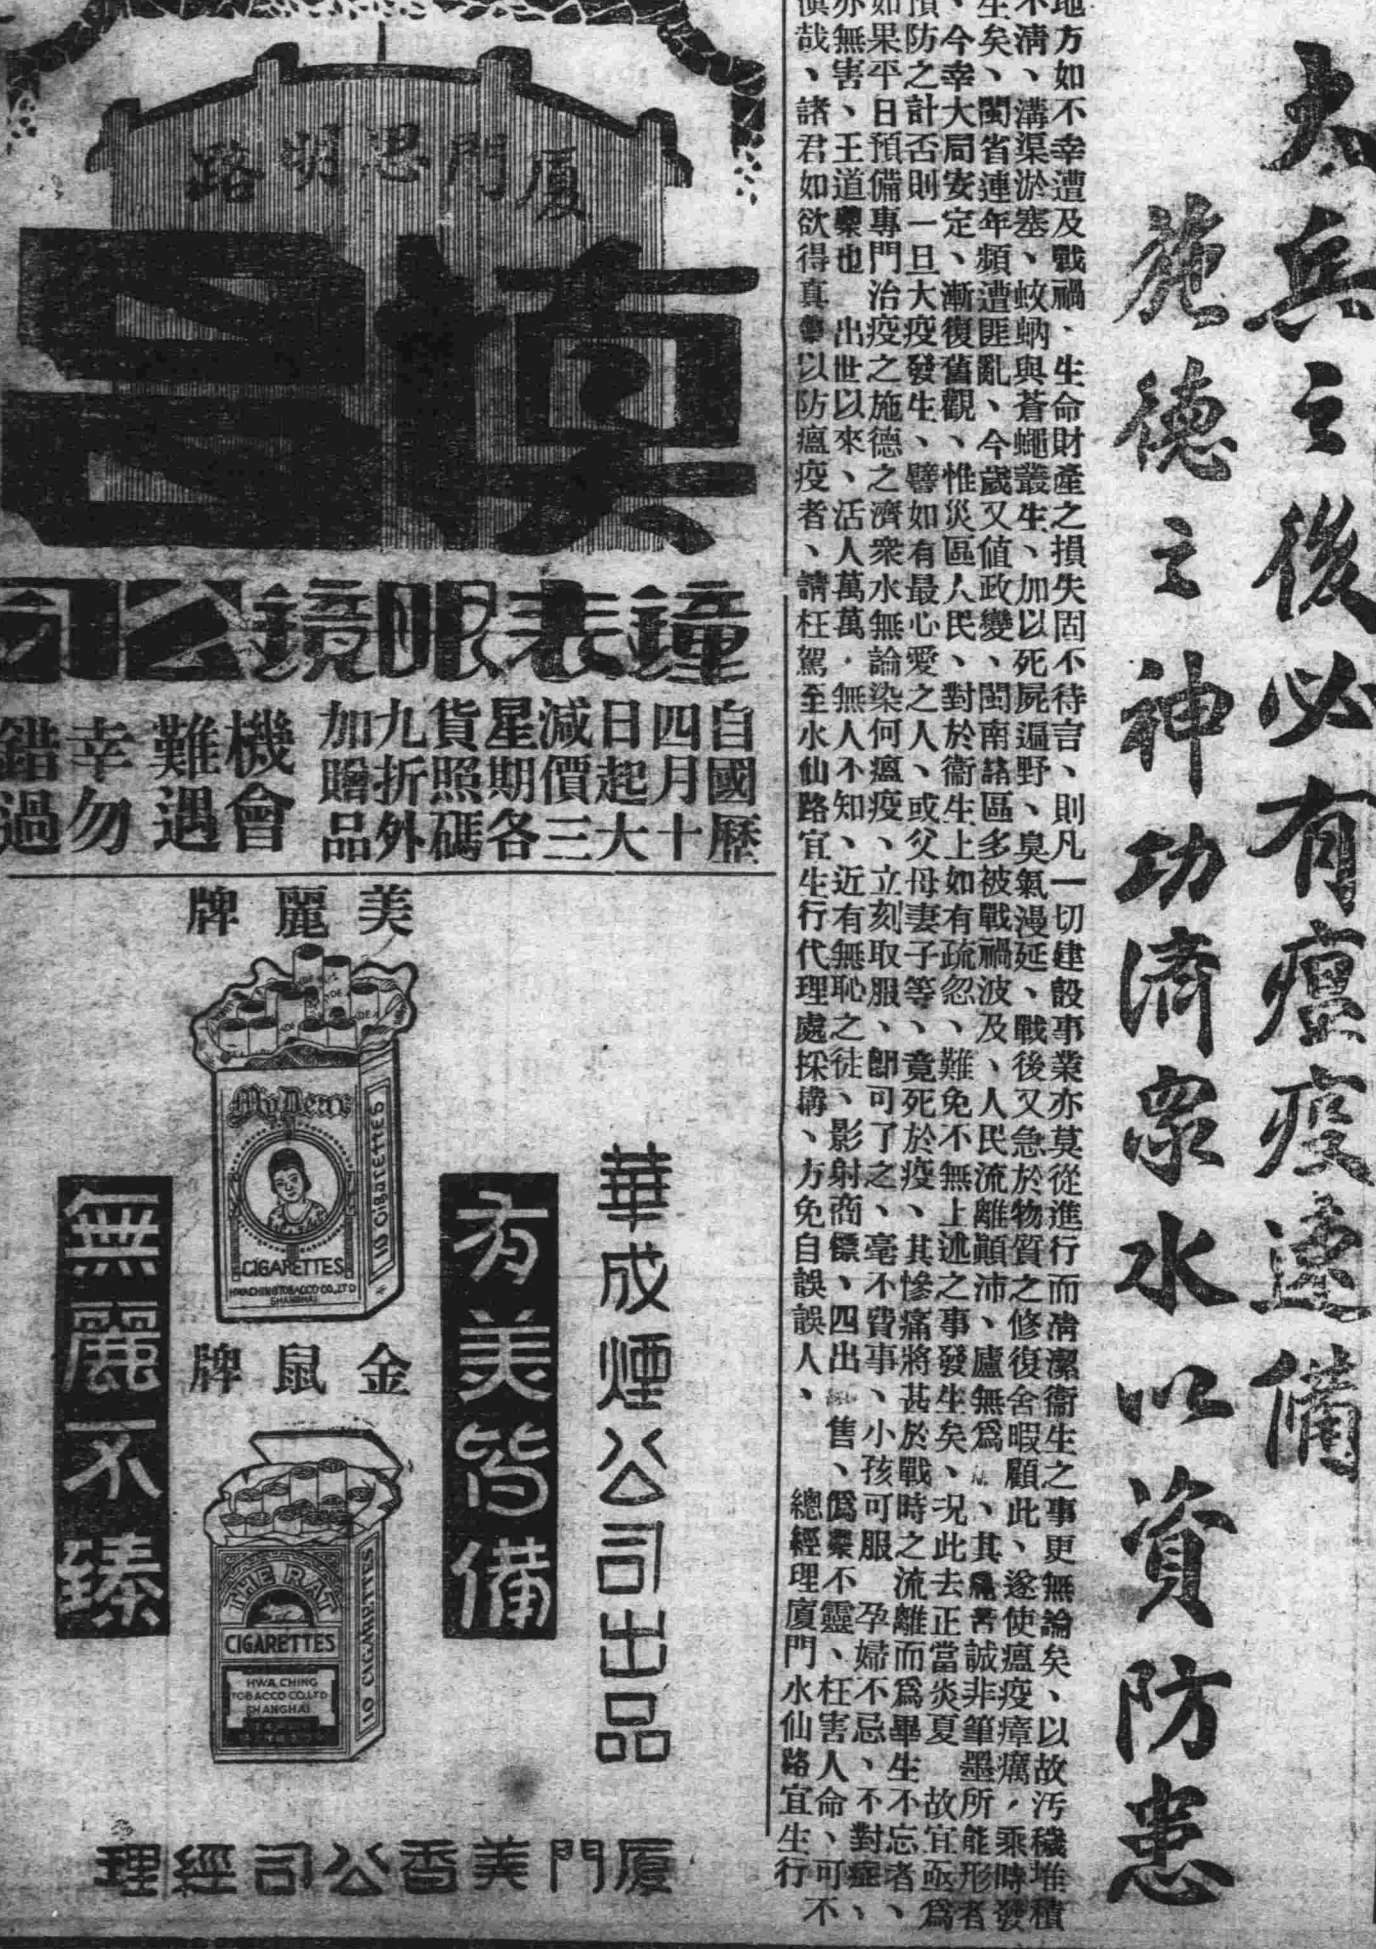 大兵之後必有瘟疫速備
施德之神功濟眾水以資防患
地方如不幸遭及戰禍、生命財產之損失固不待言、則凡一切建設事業亦莫從進行而淸潔衞生之事更無論矣、以故汚穢堆積
不淸、溝渠淤塞、蚊蚋與蒼蠅叢生、加以死屍遍野、臭氣漫延、戰後又急於物質之修復舍暇顧此、遂使瘟疫瘴癘，乘時發
生矣、閩省連年頻遭匪亂、今歲又值政變、閩南諸區多被戰禍波及、人民流離顚沛、廬無爲、其痛苦誠非筆墨所能形者
、今幸大局安定、漸復舊觀、惟災區人民、對於衞生上如有疏忽、難免不無上述之事發生矣、況此去正當炎夏 故宜亟爲
預防之計否則一旦大疫發生、譬如有最心愛之人、或父母妻子等、竟死於疫、其慘痛將甚於戰時之流離而爲畢生不忘者、
如果平日預備專門治疫之施德之濟衆水無論染何瘟疫、立刻取服、卽可了之、毫不費事、小孩可服 孕婦不忌、不對症、
亦無害、王道藥也 出世以來、活人萬萬．無人不知、近有無恥之徒、影射商標、四出售、僞藥不靈、枉害人命、可不
愼哉、諸君如欲得真藥以防瘟疫者、請枉駕至水仙路宜生行代理處採購、方免自誤誤人、 總經理廈門水仙路宜生行
廈門思明路
慎昌
鐘表眼鏡公司
自國歷
四月十
日起大
減價三
星期各
貨照碼
九折外
加贈品
機會
難遇
幸勿
錯過
美麗牌
My Dear
CIGARETTES
HWACHING TOBACCO CO., LTD
SHANGHAI
10 Cigarettes
華成煙公司出品
有美皆備
無麗不臻
金鼠牌
THE RAT
CIGARETTES
HWA CHING
TOBACCO CO.LTD
SHANGHAI
10 CIGARETTES
廈門美香公司經理